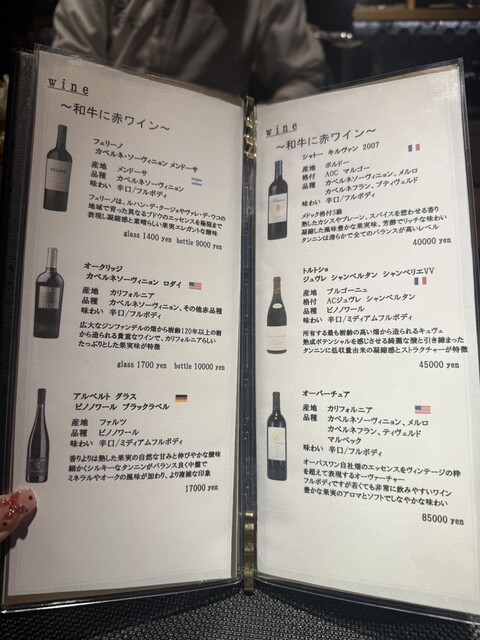 wine
～和牛に赤ワイン～
フェリーノ
カベルネソーヴィニョン メンドーサ
産地 メンドーサ
品種 カベルネソーヴィニョン
味わい 辛口/フルボディ
フェリーノは、ルハン・デ・クージョやヴァレ・デ・ウコの
地域で育った異なるブドウのエッセンスを極限まで
表現し凝縮感と素晴らしい果実エレガントな酸味
glass 1400 yen bottle 9000 yen
オークリッジ
カベルネソーヴィニョン ロダイ
産地 カリフォルニア
品種 カベルネソーヴィニョン、その他赤品種
味わい 辛口/フルボディ
広大なジンファンデルの畑から樹齢120年以上の樹
から造られる貴重なワインで、カリフォルニアらしい
たっぷりとした果実味が特徴
glass 1700 yen bottle 10000 yen
アルベルト グラス
ピノノワール ブラックラベル
産地 ファルツ
品種 ピノノワール
味わい 辛口/ミディアムフルボディ
香りよりは熟した果実の自然な甘みと伸びやかな酸味
細かくシルキーなタンニンがバランス良く中盤で
ミネラルやオークの風味が加わり、より複雑な印象
17000 yen
wine
～和牛に赤ワイン～
シャトー キルヴァン 2007
産地 ボルドー
格付 AOC マルゴー
品種 カベルネソーヴィニョン、メルロ
カベルネフラン、プティヴェルド
味わい 辛口/フルボディ
メドック格付3級
熟したカシスやプレーン、スパイスを想わせる香り
凝縮した風味豊かな果実味、芳醇でリッチな味わい
タンニンは滑らかで全てのバランスが高いレベル
40000 yen
トルトショ
ジュヴレ シャンベルタン シャンペリエVV
産地 ブルゴーニュ
格付 ACジュヴレ シャンベルタン
品種 ピノノワール
味わい 辛口/ミディアムフルボディ
所有する最も樹齢の高い畑から造られるキュヴェ
熟成ポテンシャルを感じさせる綺麗な酸と引き締まった
タンニンに低収量由来の凝縮感とストラクチャーが特徴
45000 yen
オーバーチュア
産地 カリフォルニア
品種 カベルネソーヴィニョン、メルロ
カベルネフラン、ティヴェルド
マルベック
味わい 辛口/フルボディ
オーパスワン自社畑のエッセンスをヴィンテージの枠
を超えて表現するオーヴァーチャー
フルボディですが若くても非常に飲みやすいワイン
豊かな果実のアロマとソフトでしなやかな味わい
85000 yen